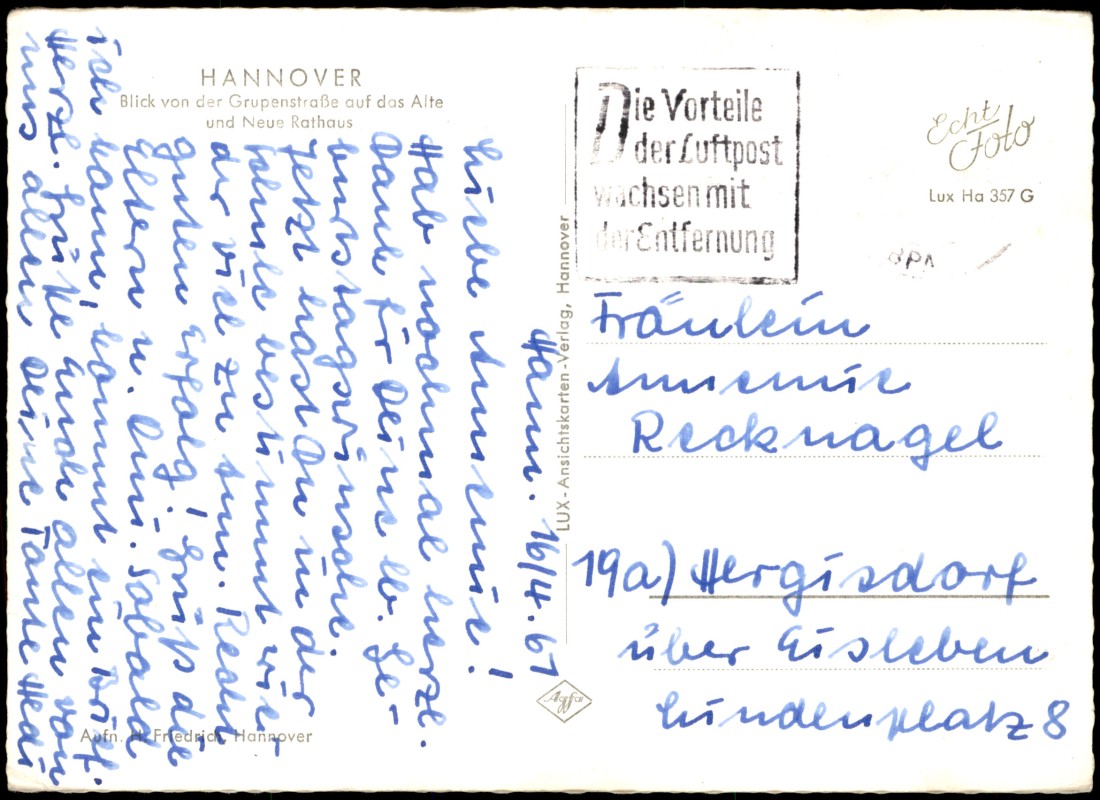 HANNOVER
Blick von der Grupenstraße auf das Alte
und Neue Rathaus
Hann. 16/4.61
Liebe Annemie!
Hab nochmal herzl.
Dank für Deine lb. Ge-
burtstagswünsche.
Jetzt hast Du in der
Schule bestimmt wie-
der viel zu tun. Recht
guten Erfolg! Grüß die
Eltern u. Omi. Sobald
ich kann, kommt ein Brief.
Herzl. Grüße Euch allen von
uns allen Deine Tante Hedi
Aufn. H. Friedrich, Hannover
LUX-Ansichtskarten-Verlag, Hannover
Agfa
Die Vorteile
der Luftpost
wachsen mit
der Entfernung
Echt
Foto
Lux Ha 357 G
Fräulein
Annemie
Recknagel
19a) Hergisdorf
über Eisleben
Lindenplatz 8